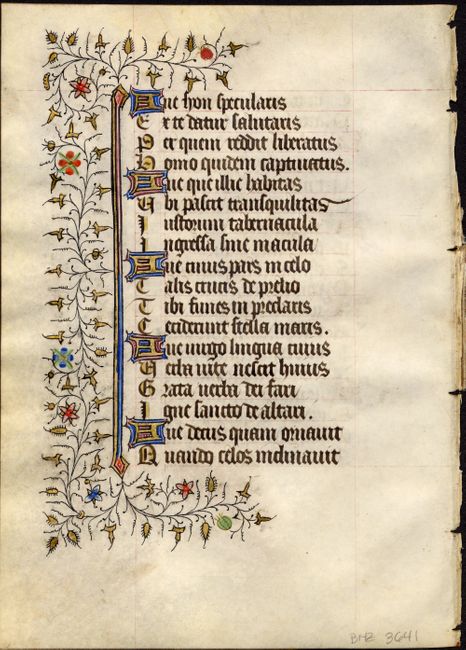 Aue hon specularis
Ex te datur salutaris
Per quem reddit liberatus
Homo quidem captiuatus.
Aue que illic habitas
Ubi pascit transquilitas
Iustorum tabernacula
Ingressa sine macula
Aue cuius pars in celo
Talis crucis de prelio
Tibi funes in preclaris
Ceciderunt stella maris.
Aue uirgo lingua cuius
Uerba uite nescit huius
Grata uerba dei fari
Igne sancto de altari.
Aue decus quam ornauit
Quando celos inclinauit
BHZ 3641